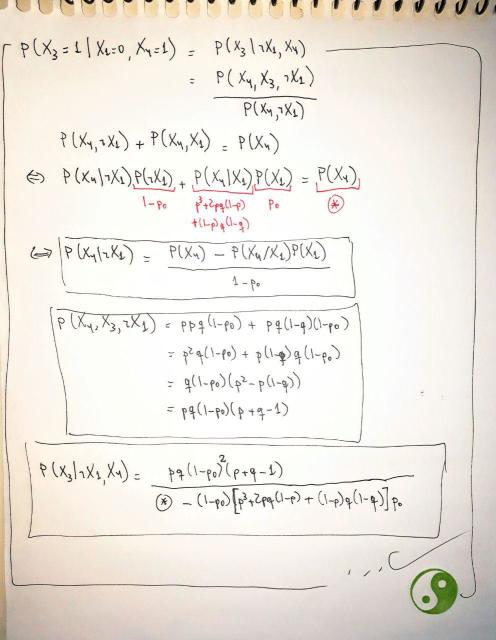 P(X₃=1 | X₁=0, X₄=1) = P(X₃|¬X₁, X₄)
= P(X₄, X₃, ¬X₁)
P(X₄, ¬X₁)
P(X₄, ¬X₁) + P(X₄, X₁) = P(X₄)
⇔ P(X₄|¬X₁) P(¬X₁) + P(X₄|X₁) P(X₁) = P(X₄)
1-p₀ p³+2pq(1-p) p₀ ⊛
+(1-p)q(1-q)
⇔ P(X₄|¬X₁) = P(X₄) - P(X₄/X₁)P(X₁)
1-p₀
P(X₄, X₃, ¬X₁) = ppq(1-p₀) + pq(1-q)(1-p₀)
= p²q(1-p₀) + p(1-q)q(1-p₀)
= q(1-p₀)(p²-p(1-q))
= pq(1-p₀)(p+q-1)
P(X₃|¬X₁, X₄) = pq(1-p₀)²(p+q-1)
⊛ - (1-p₀)[p³+2pq(1-p)+(1-p)q(1-q)]p₀
...